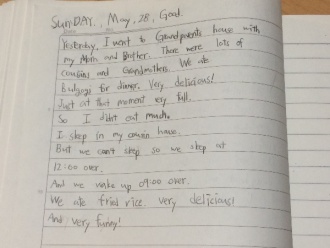 SunDAY, May, 28, Good.
Yesterday, I went to Grandparents house with
my Mom and Brother. There were lots of
cousins and Grandmothers. We ate
Bulgogi for dinner. Very delicious!
Just at that moment very full.
So I didn't eat much.
I sleep in my cousin house.
But we can't sleep so we sleep at
12:00 over.
And we wake up 09:00 over.
We ate fried rice. Very delicious!
And very funny!